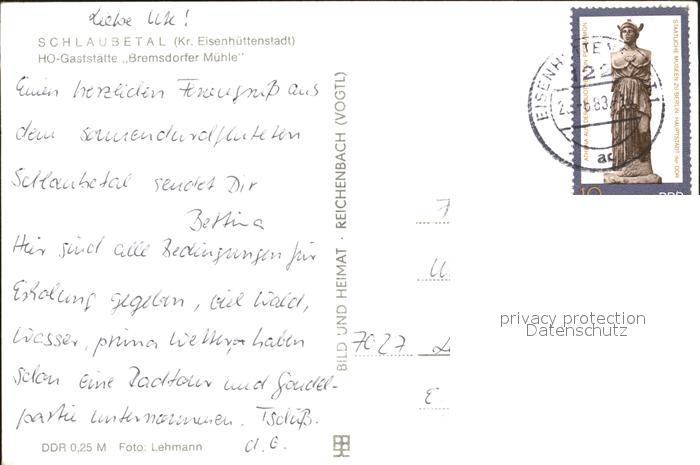 Liebe Ute!
SCHLAUBETAL (Kr. Eisenhüttenstadt)
HO-Gaststätte „Bremsdorfer Mühle"
Einen herzlichen Feriengruß aus
dem sonnendurchfluteten
Schlaubetal sendet Dir
Bettina
Hier sind alle Bedingungen für
Erholung gegeben, viel Wald,
Wasser, prima Wetter, haben
schon eine Radtour und Gondel-
partie unternommen. Tschüß.
d. O.
DDR 0,25 M Foto: Lehmann
BILD UND HEIMAT · REICHENBACH (VOGTL)
7027
E.
EISENHÜTTENSTADT 1
122
83
ac
STAATLICHE MUSEEN ZU BERLIN HAUPTSTADT der DDR
10
DDR
privacy protection
Datenschutz